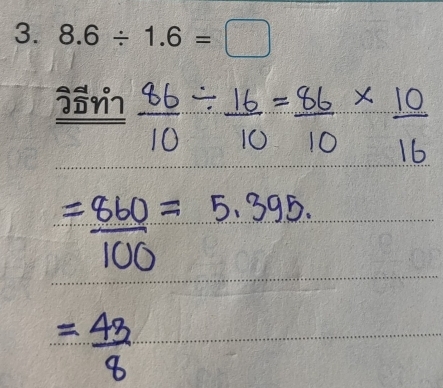 3. 8.6 ÷ 1.6 =
วิธีทำ 86/10 ÷ 16/10 = 86/10 × 10/16
= 860/100 = 5.395.
= 43/8